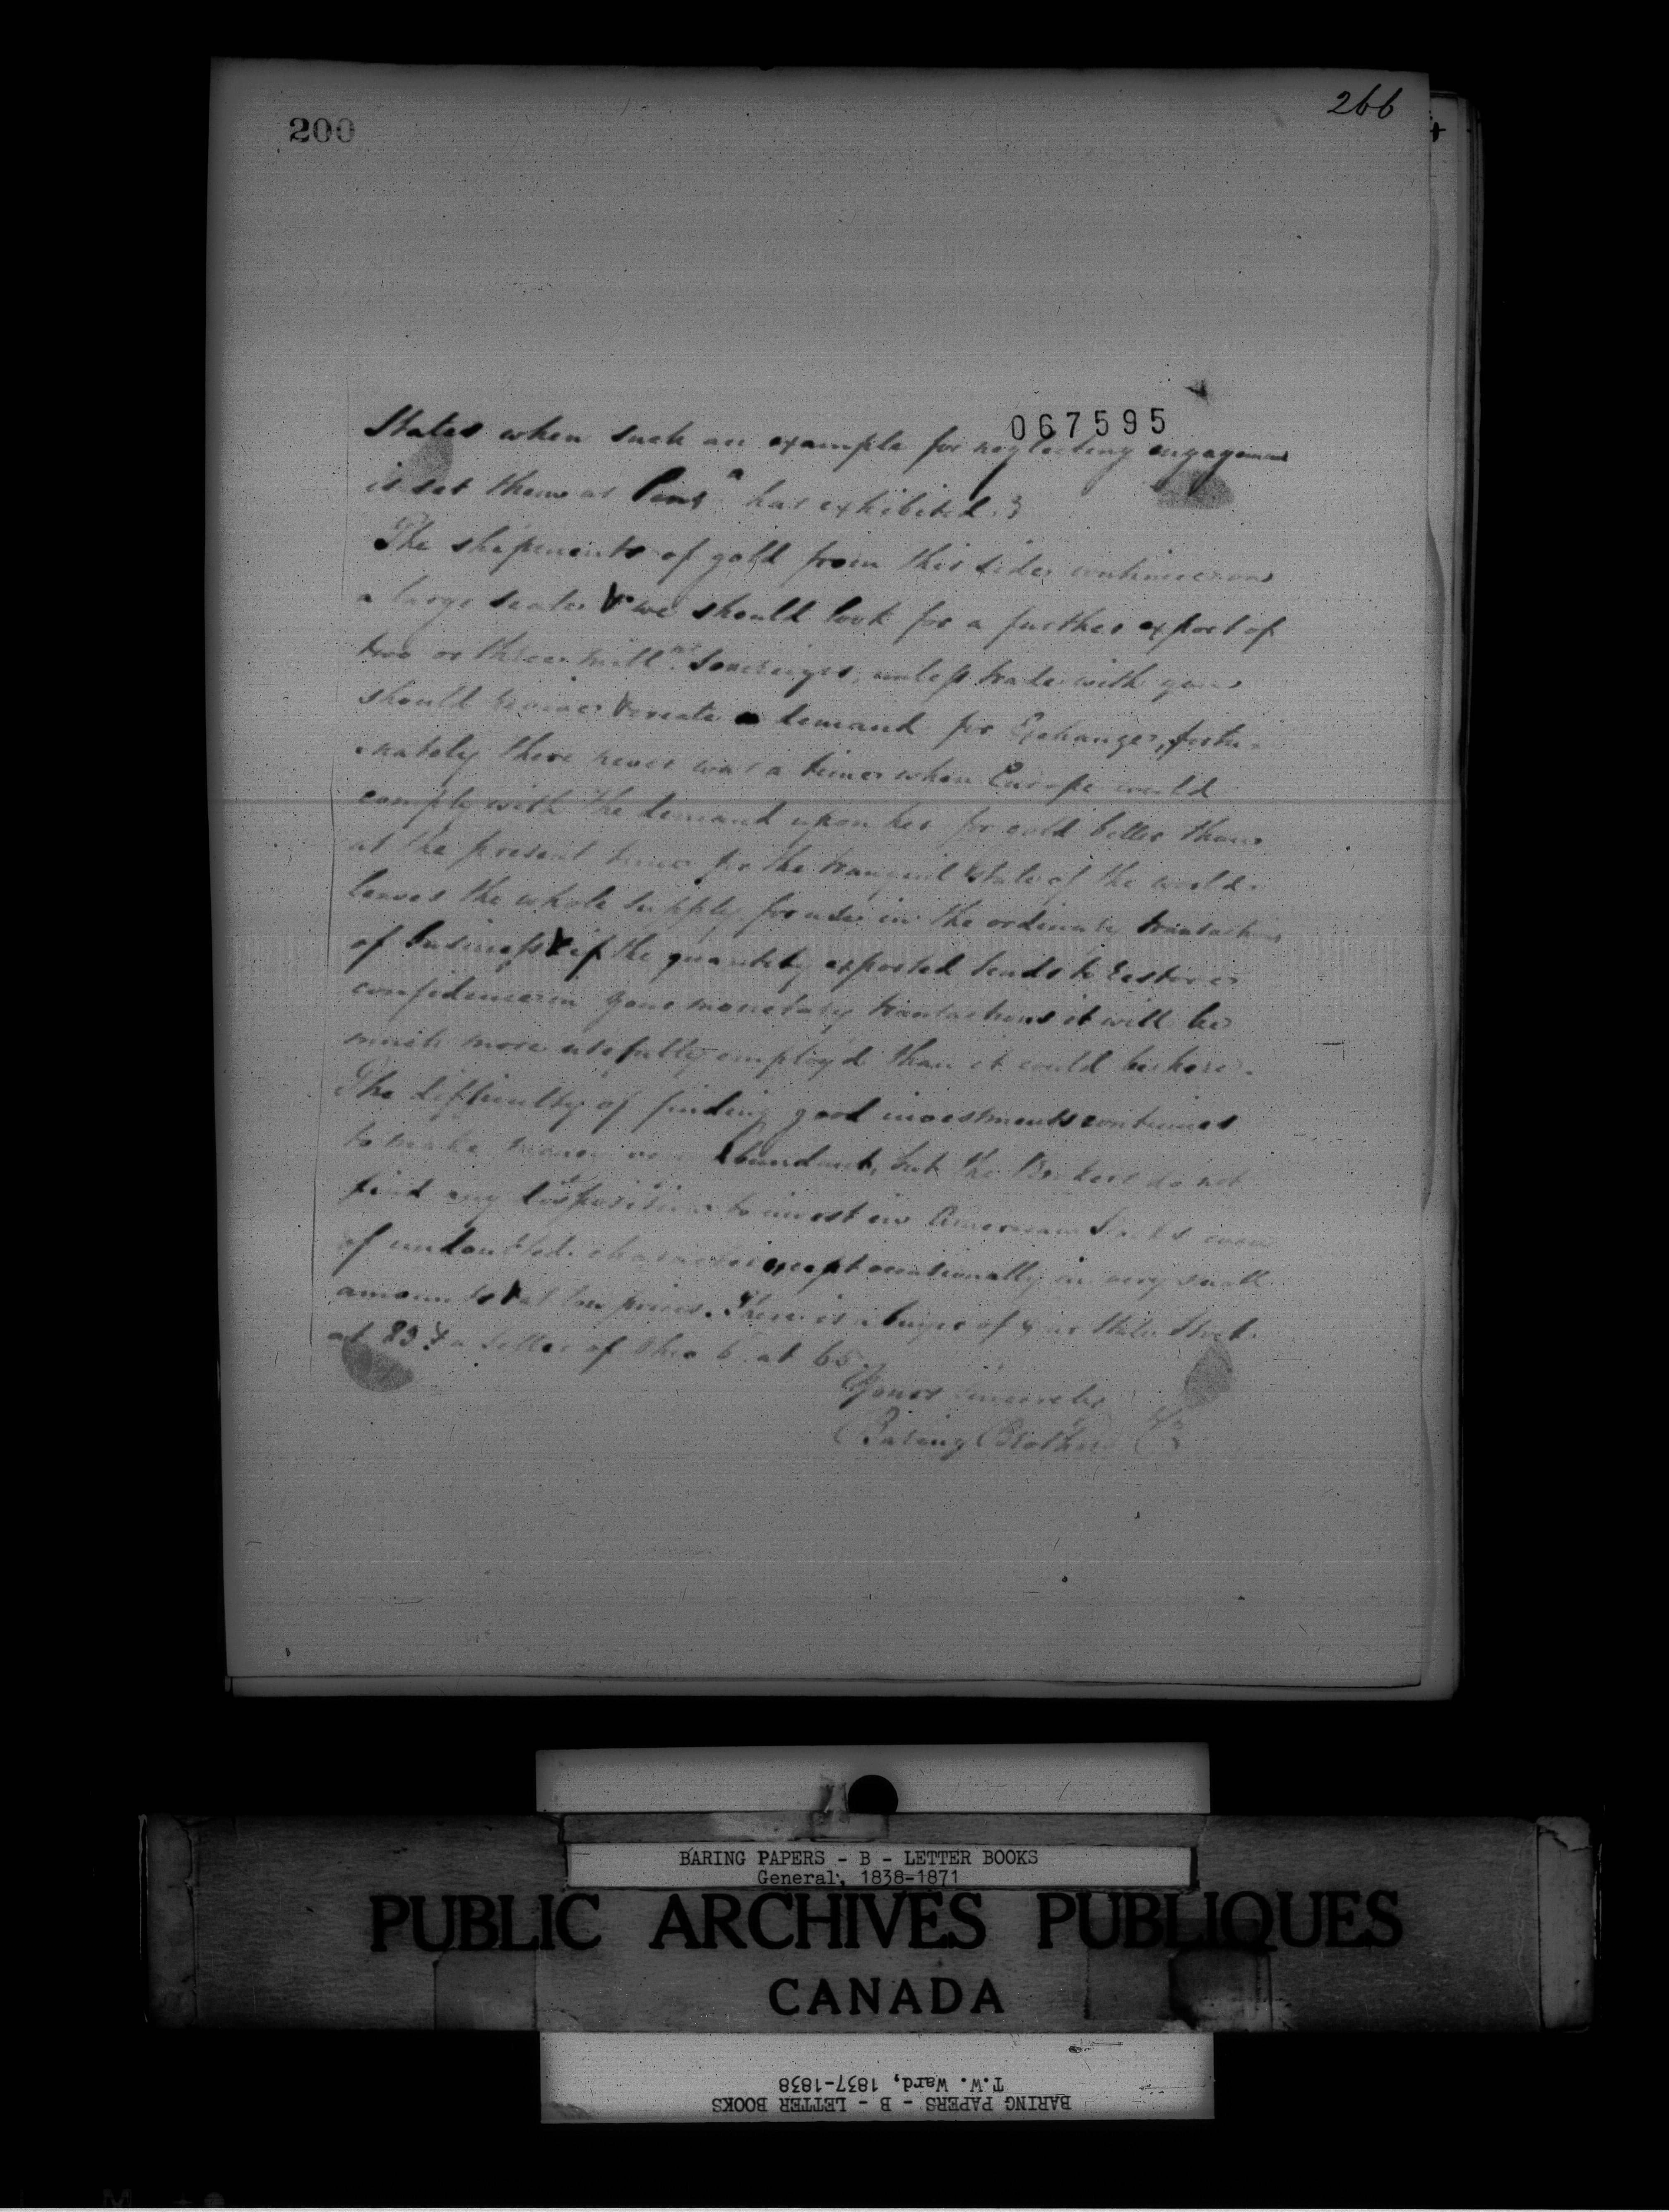 200
266
067595
States when such an example for neglecting engagement
is set them as Penns^a has exhibited.
The shipments of gold from this side continue on
a large scale & we should look for a further export of
two or three mill^ns Sovereigns, unless trade with you
should revive & create a demand for Exchange, fortu-
nately there never was a time when Europe could
comply with the demand upon her for gold better than
at the present time for the tranquil state of the world
leaves the whole supply for use in the ordinary transactions
of business & if the quantity exported tends to restore
confidence in your monetary transactions it will be
much more usefully employ'd than it could be here.
The difficulty of finding good investments continues
to make money abundant, but the Brokers do not
find any disposition to invest in American Stocks even
of undoubted character except occasionally in very small
amounts & at low prices. There is a buyer of your State Stock
at 83 & a seller of Ohio 6 at 65.
Yours sincerely
Baring Brothers & Co
BARING PAPERS - B - LETTER BOOKS
General, 1838-1871
PUBLIC ARCHIVES PUBLIQUES
CANADA
T.W. Ward, 1837-1838
BARING PAPERS - B - LETTER BOOKS